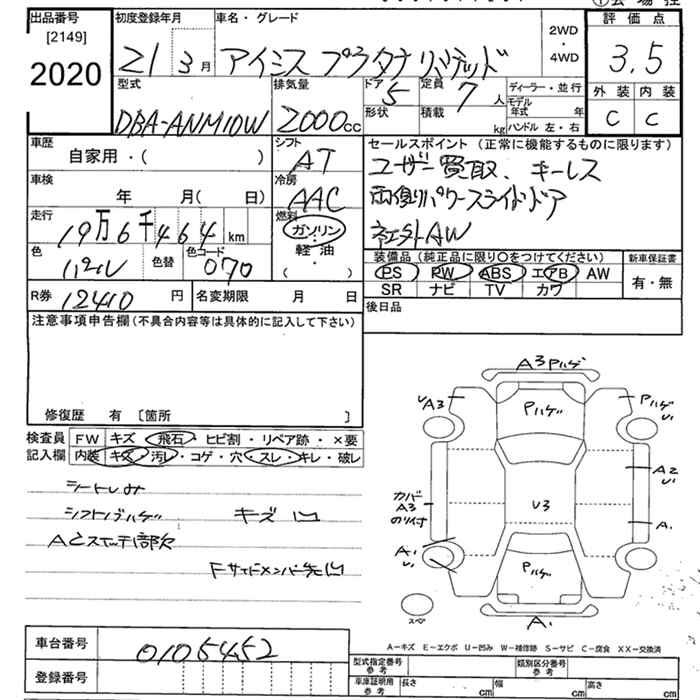 出品番号 初度登録年月 車名・グレード 評価点
[2149]
2020 21 3月 アイシス プラタナリミテッド 2WD・4WD 3.5
型式 排気量 ドア 5 定員 7人 ディーラー・並行 外装 内装
DBA-ANM10W 2000cc 形状 積載 kg モデル年式 年 ハンドル 左・右 C C
車歴 シフト セールスポイント (正常に機能するものに限ります)
自家用・( ) AT ユーザー買取、キーレス
車検 冷房 両側パワースライドドア
年 月( 日) AAC 社外AW
走行 燃料
19万6千464km ガソリン・軽油・( )
色 パール 色替 色コード 070
装備品 (純正品に限り○をつけてください) 新車保証書
PS PW ABS エアB AW 有・無
SR ナビ TV カワ
R券 12410円 名変期限 月 日 後日品
注意事項申告欄 (不具合内容等は具体的に記入して下さい)
修復歴 有 [箇所 ]
検査員記入欄 FW キズ・飛石・ヒビ割・リペア跡・×要
内装 キズ・汚レ・コゲ・穴・スレ・キレ・破レ
シフトノブハゲ キズ凹
Fサイドメンバー先凹
A3 Pハゲ
UA3 Pハゲ Pハゲ U1
A2 U1
カバー A3 のり付 U3 A1
A1 U1 Pハゲ
スペ A1
A-キズ E-エクボ U-凹み W-補修跡 S-サビ C-腐食 XX-交換済
車台番号 0105452
登録番号
型式指定番号 参考 類別区分番号 参考
車庫証明用 参考 長さ cm 幅 cm 高さ cm